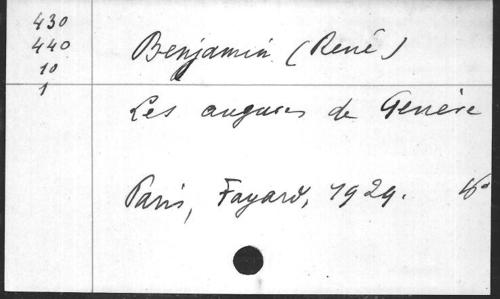 430
440
10
1
Benjamin (René)
Les augures de Genève
Paris, Fayard, 1929.